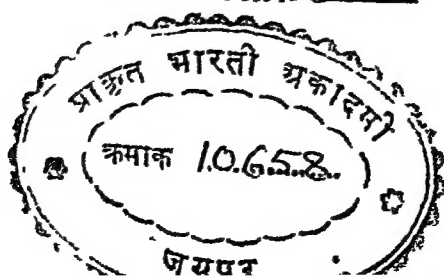 प्राकृत भारती अकादमी
क्रमाक 10658
जयपुर